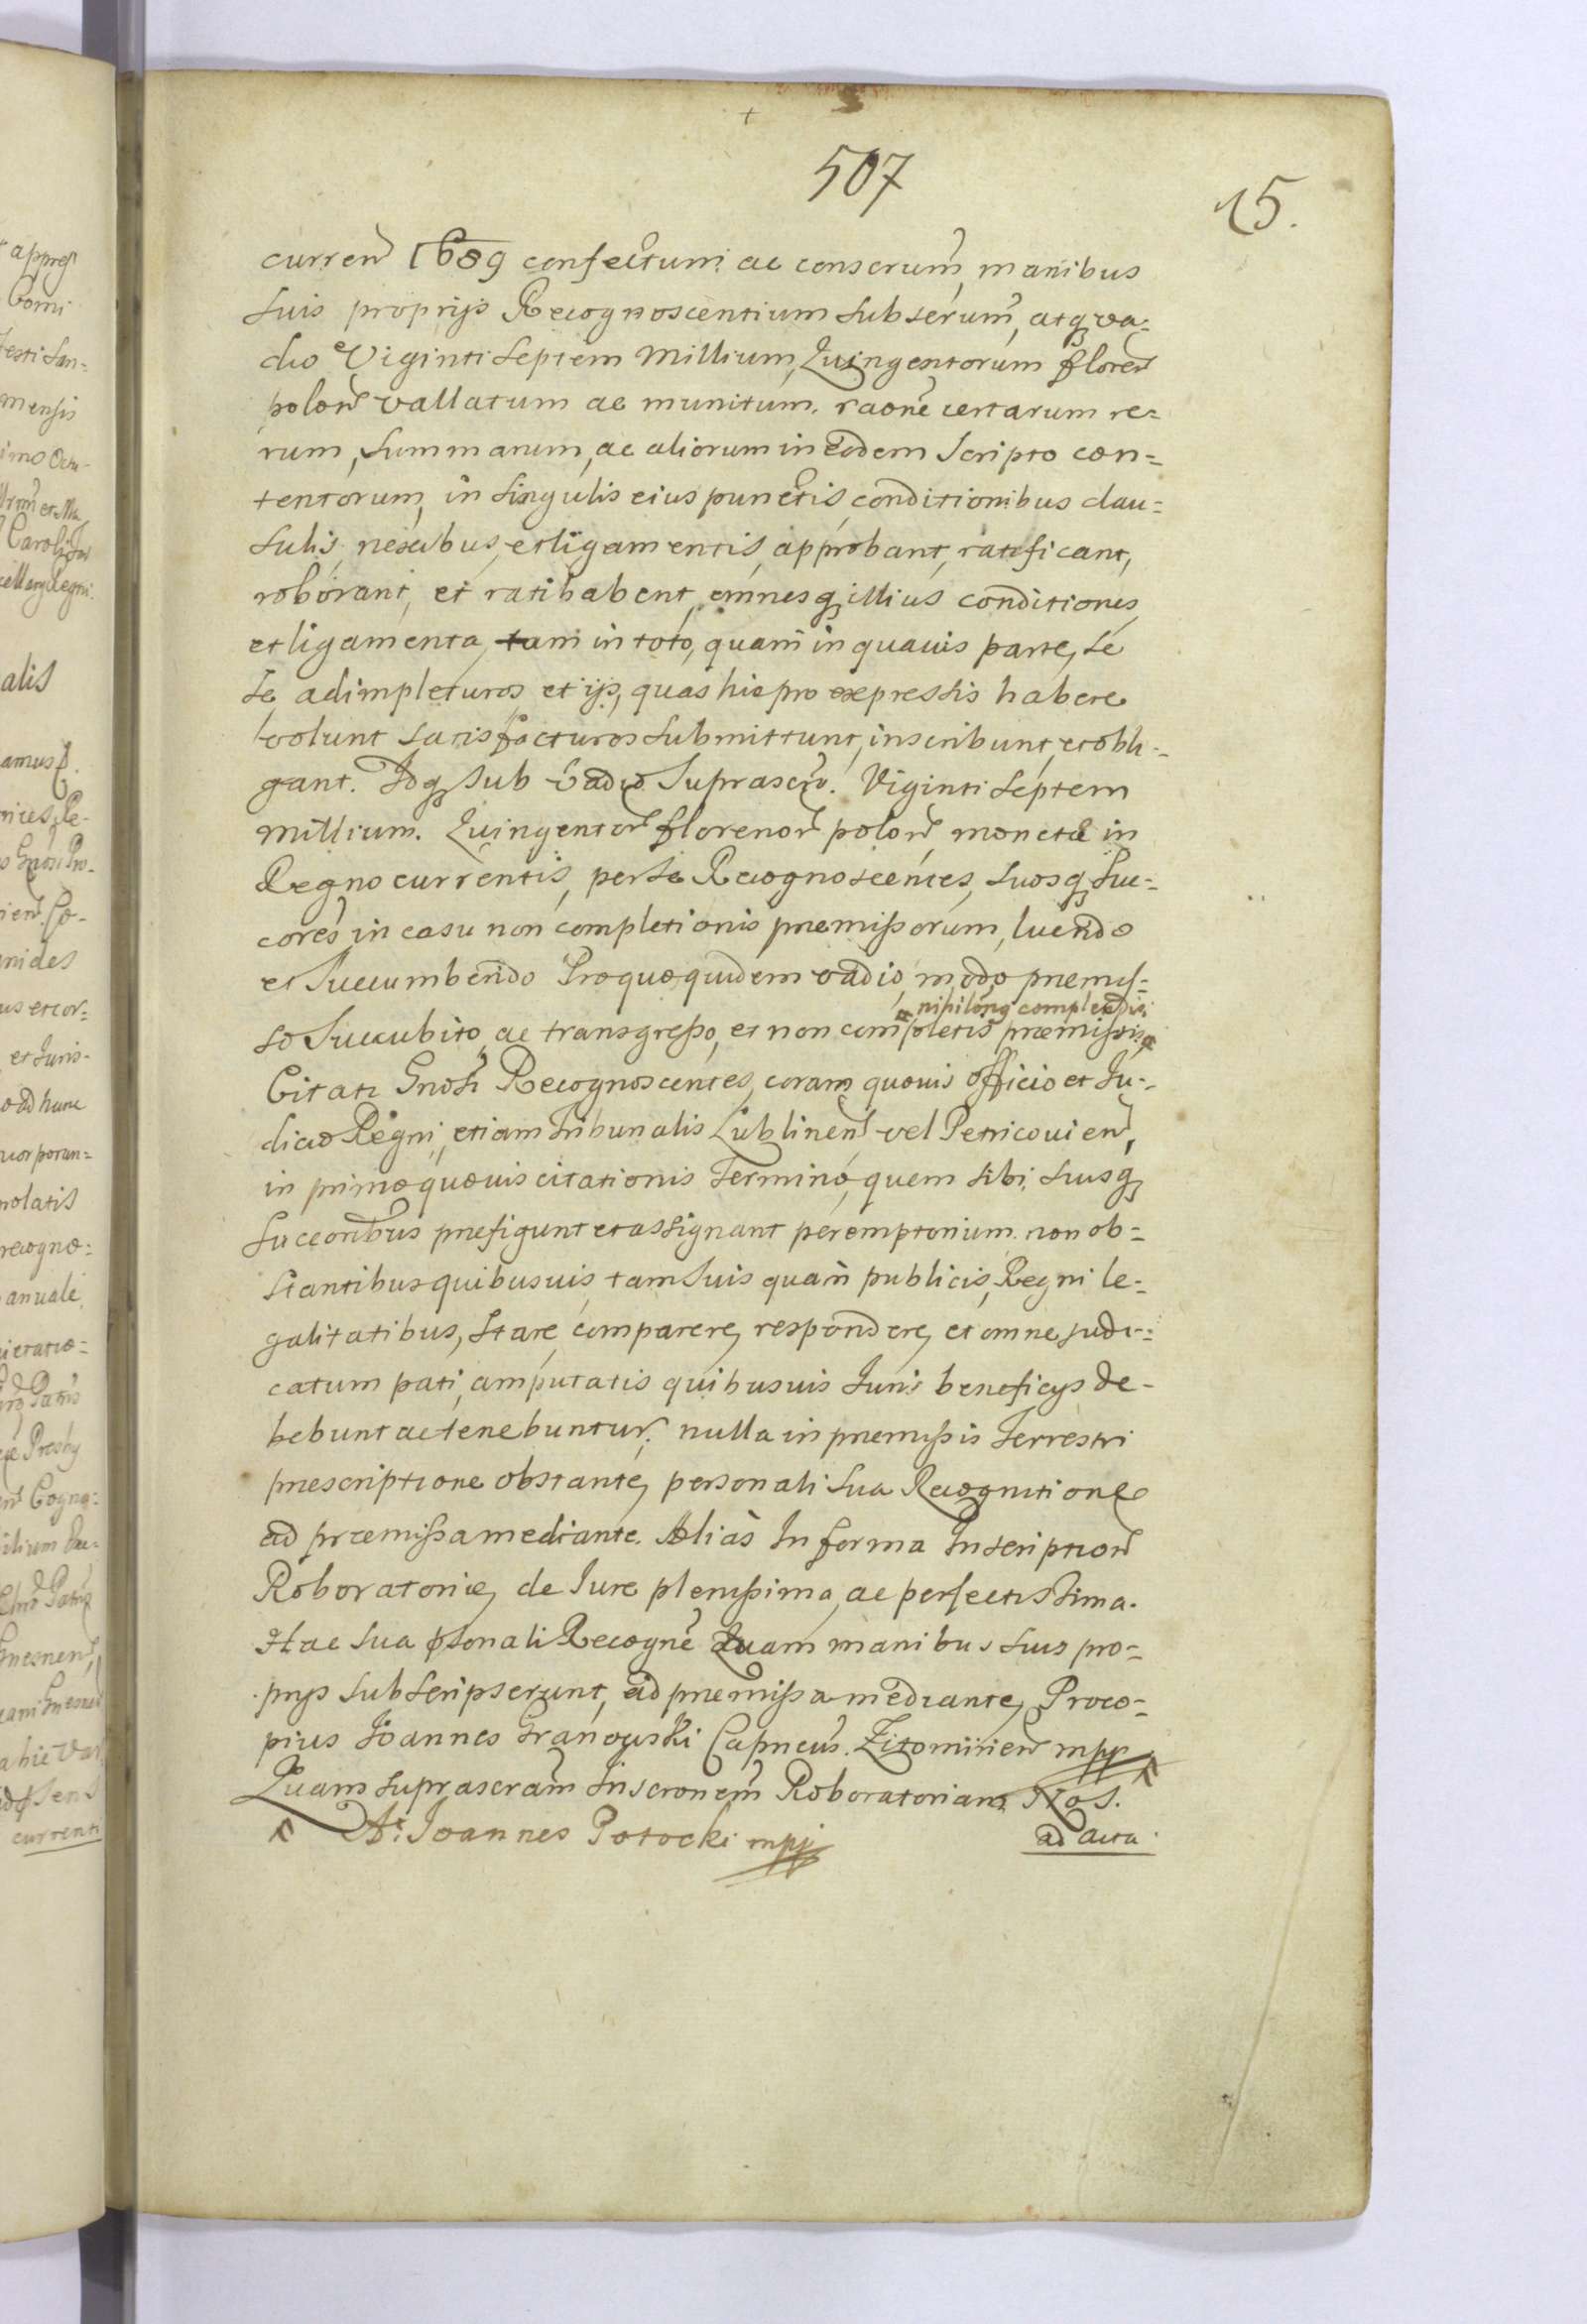 507
15.
curren 1689 confectum ac conscrum, manibus
suis proprijs Recognoscentium subscrum, atq va-
dio Viginti septem Millium, Quingentorum floren
polon vallatum ac munitum. raone certarum re-
rum, summarum, ac aliorum in eodem Scripto con-
tentorum, in singulis eius punctis, conditionibus clau-
sulis, nexibus, et ligamentis, approbant, ratificant,
roborant, et ratihabent, omnesq illius conditiones,
et ligamenta, tam in toto, quam in quavis parte, se
se adimpleturos, et ijs, quas hic pro expressis habere
volunt satisfacturos submittunt, inscribunt, et obli-
gant. Idq sub vadio suprascro. Viginti septem
millium. Quingentor florenor polon, monetæ in
Regno currentis, per se Recognoscentes, suosq suc-
cores in casu non completionis præmissorum, luendo
et succumbendo Pro quo quidem vadio, modo præmis-
nihilonq complendis
so succubito, ac transgresso, et non completis præmissis
Citati Gnosi Recognoscentes, coram quovis officio et Iu-
dicio Regni, etiam Tribunalis Lublinen vel Petricovien,
in primo quovis citationis Termino, quem sibi, suisq
succoribus præfigunt et assignant peremptorium. non ob-
stantibus quibusvis, tam suis quam publicis, Regni le-
galitatibus, stare, comparere, respondere, et omne judi-
catum pati, amputatis quibusvis Iuris beneficijs de-
bebunt ac tenebuntur, nulla in præmissis Terrestri
præscriptione obstante, personali sua Recognitione
ad præmissa mediante. Aliàs In forma Inscription
Roboratoriæ, de Iure plenissima, ac perfectissima.
Hac sua psonali Recogne Quam manibus suis pro-
prijs subscripserunt, ad præmissa mediante, Proco-
pius Joannes Granowski Capneus. Zitomirien mpp
Quam suprascram Inscronem Roboratoriam Nos.
A: Joannes Potocki mpp
ad acta